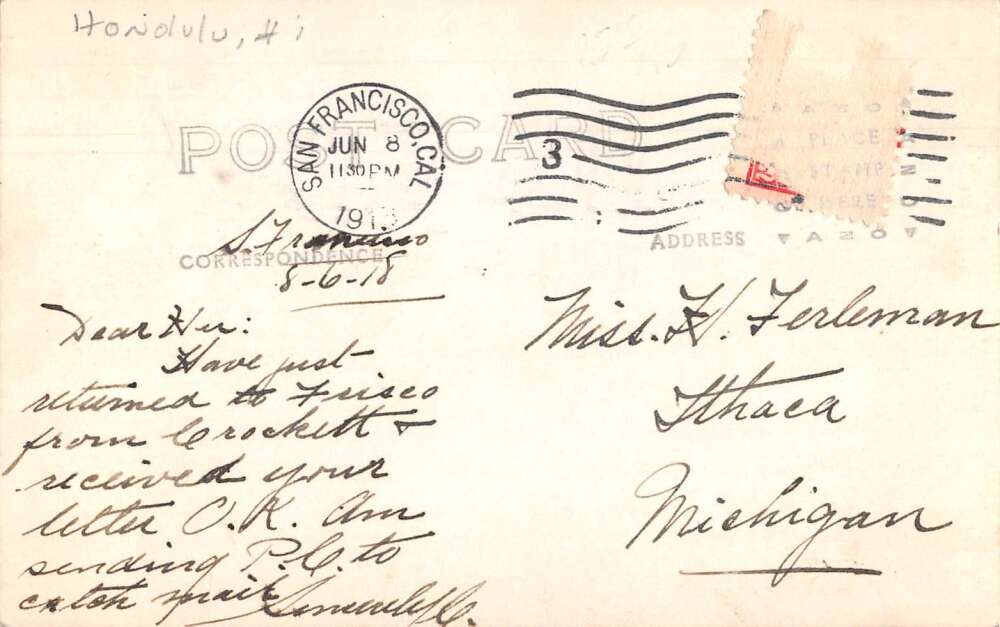 Honolulu, Hi
POST CARD
SAN FRANCISCO, CAL.
JUN 8
1130 PM
191
3
AZO
PLACE
STAMP
HERE
AZO
CORRESPONDENCE
ADDRESS
S. Francisco
8-6-18
Dear
Have just
returned to Frisco
from Crockett &
received your
letter O.K. Am
sending P.C. to
catch mail Sincerely
Miss. H. Ferleman
Ithaca
Michigan